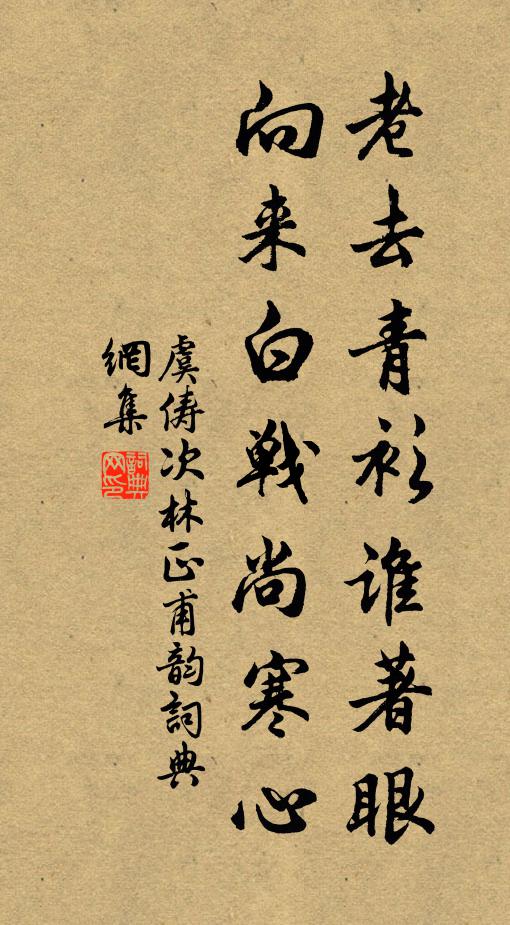 老去青衫谁著眼
向来白戦尚寒心
虞俦次林正甫韵詞典
網集
詞典网印